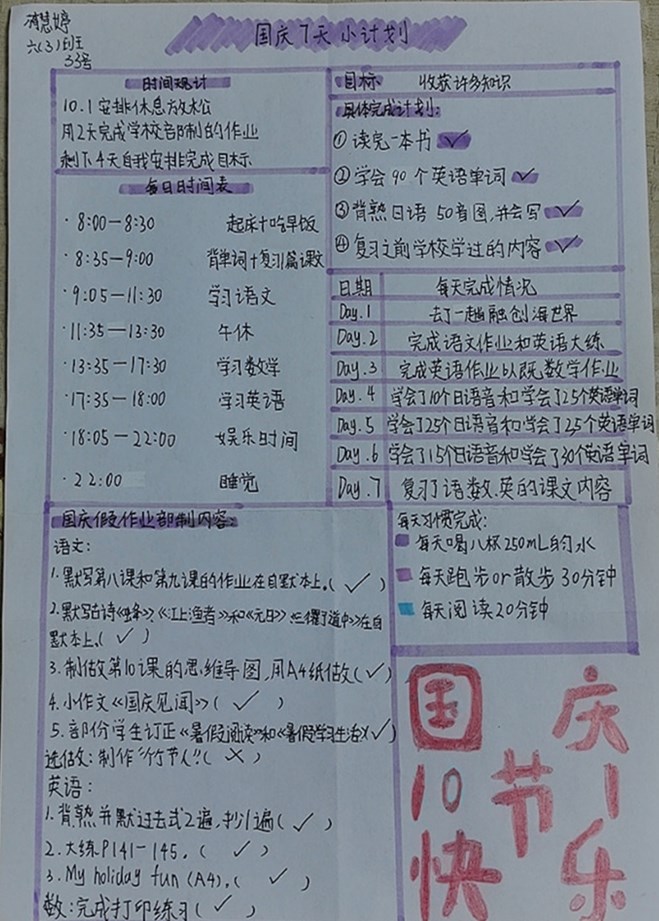 慧婷
六(3)班
33号
国庆7天小计划
时间规计
10.1安排休息放松
用2天完成学校部制的作业
剩下4天自我安排完成目标
每日时间表
·8:00—8:30 起床+吃早饭
·8:35—9:00 背单词+复习1篇课文
·9:05—11:30 学习语文
·11:35—13:30 午休
·13:35—17:30 学习数学
·17:35—18:00 学习英语
·18:05—22:00 娱乐时间
·22:00 睡觉
目标 收获许多知识
具体完成计划:
①读完一本书✓
②学会90个英语单词✓
③背熟日语50音图,并会写✓
④复习之前学校学过的内容✓
日期 每天完成情况
Day.1 去了一趟融创海世界
Day.2 完成语文作业和英语大练
Day.3 完成英语作业以既数学作业
Day.4 学会了10个日语音和学会了25个英语单词
Day.5 学会了25个日语音和学会了25个英语单词
Day.6 学会了15个日语音和学会了30个英语单词
Day.7 复习了语数.英的课文内容
国庆假作业部制内容:
语文:
1.默写第八课和第九课的作业在自默本上。(✓)
2.默写古诗《蜂》、《江上渔者》和《元日》《三衢道中》在自
默本上。(✓)
3.制做第10课的思维导图,用A4纸做(✓)
4.小作文《国庆见闻》(✓)
5.部份学生订正《暑假阅读》和《暑假学习生活》(✓)
选做:制作"竹节人"(✗)
英语:
1.背熟并默过去式2遍,抄1遍(✓)
2.大练P141—145。(✓)
3.My holiday fun (A4)。(✓)
数:完成打印练习(✓)
每天习惯完成:
每天喝八杯250mL的水
每天跑步or散步30分钟
每天阅读20分钟
国庆
10节1
快乐